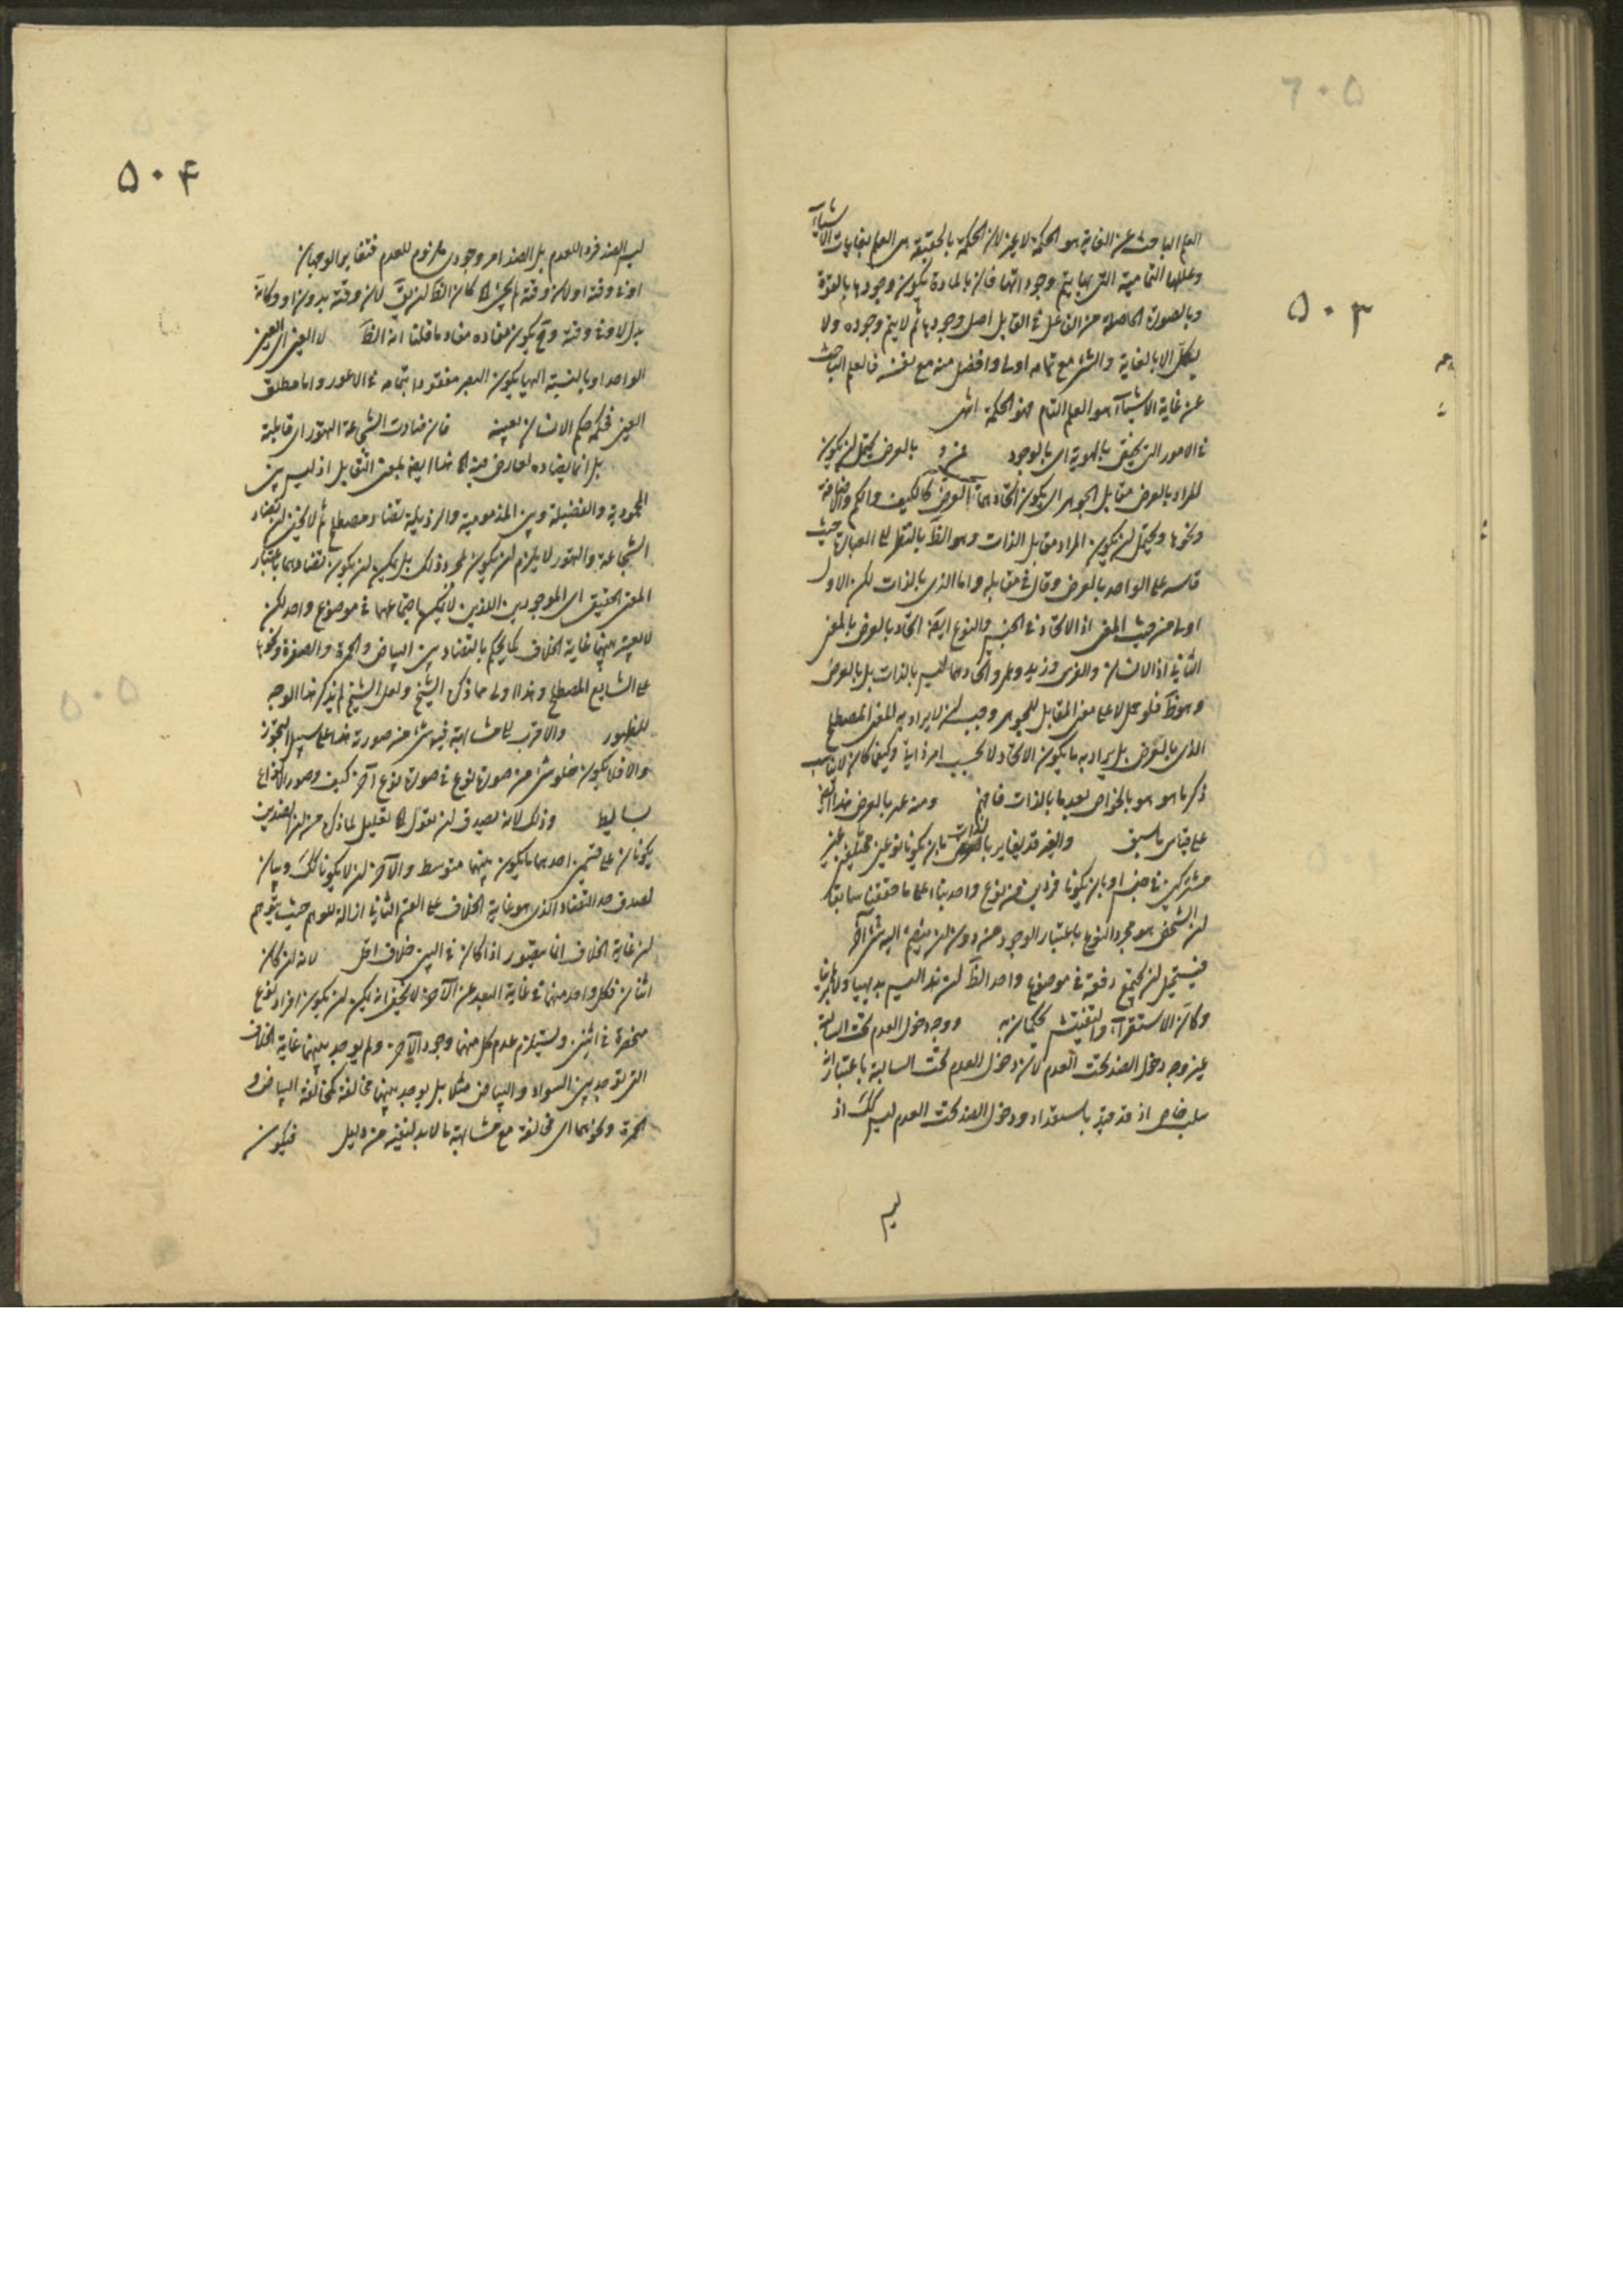 ۵۰۳
العلم الباحث عن الغاية هو الحكمة لا غير لان الحكمة بالحقيقة هى العلم بغايات الاشياء
وعللها التمامية التى بها يتم وجوداتها فان بالمادة يكون وجودها بالقوة
وبالصورة الحاصلة من الفاعل فى القابل اصل وجودها ثم لا يتم وجوده ولا
يكمل الا بالغاية والشئ مع تمامه اولى وافضل منه مع نفسه فالعلم الباحث
عن غاية الاشياء هو العلم التام فهو الحكمة انتهى
فى الامور التى يحقق بالهوية اى بالوجود بالعرض يحتمل ان يكون
المراد بالعرض مقابل الجوهر اى يكون اتحادهما فى العرض كالكيف والكم والاضافة
ونحوها ويحتمل ان يكون المراد مقابل الذات وهو الظ بالنظر الى العبارة حيث
قاسه على الواحد بالعرض وقال فى مقابله واما الذى بالذات لكن الاول
اولى من حيث المعنى اذ الاتحاد فى الجنس والنوع ايضا اتحاد بالعرض بالمعنى
الثانى اذ الانسان والفرس وزيد وعمرو اتحادهما ليس بالذات بل بالعرض
وهو ظ فلو حمل لا على معنى المقابل للجوهر وجب ان لا يراد به المعنى المصطلح
الذى بالعرض بل يراد به ما يكون الاتحاد لا بحسب امر ذاتى وكيف كان لا يناسب
ذكر ما هو هو بالخواص بعد ما بالذات فافهم ومنه غير بالعرض هذا ايضا
على قياس ما سبق والغير قد يغاير بالذات بان يكونا نوعين مختلفين غير
مشتركين فى جنس او بان يكونا فردين من نوع واحد بناء على ما حققنا سابقا
ان الشخص هو مجرد النوع باعتبار الوجود من دون ان ينضم اليه شئ آخر
فيستحيل ان يجتمع دفعة فى موضوع واحد الظ ان هذا ليس بديهيا ولا برهانيا
وكان الاستقراء والتفتيش يحكمان به ووجه دخول العدم تحت السالبة
غير وجه دخول الضد تحت العدم لان دخول العدم تحت السالبة باعتبار انه
سلب خاص اذ قد قيد باستعداد ودخول الضد تحت العدم ليس كك اذ
ليس
۵۰۴
ليس الضد فردا للعدم بل الضد امر وجودى ملزوم للعدم فتغاير الوجهان
بدل لا وقته وح يكون مفاده مفاد ما قلنا انه الظ لا العين اى العين
الواحد او بالنسبة اليها يكون البصر مفقودا بتمامه فى الاعور واما مطلق
العين فحكمه حكم الانسان بعينه فان مضادت الشجاعة التهور اى قابلته
بل انما يضاده لعارض فيه هذا ايضا بمعنى التقابل اذ ليس بين
المحمودية والفضيلة وبين المذمومية والرذيلة تضاد مصطلح ثم لا يخفى ان تضاد
الشجاعة والتهور لا يلزم ان يكون بمجرد ذلك بل يمكن ان يكون تضادهما باعتبار
المعنى الحقيقى اى الموجودين اللذين لا يمكن اجتماعهما فى موضوع واحد لكن
لا يعتبر بينهما غاية الخلاف كما يحكم بالتضاد بين البياض والحمرة والصفرة ونحوها
على الشايع المصطلح وهذا اولى مما ذكره الشيخ ولعل الشيخ لم يذكر هذا الوجه
للظهور والاقرب الى مشابهة فيه شئ من صورته هذا على سبيل التجوز
والا فلا يكون خلو شئ من صورة نوع فى صورة نوع آخر كيف وصور الانواع
بسايط وذلك لانه يصدق ان نقول تعليل لما ذكره من ان الضدين
يكونان على قسمين احدهما ما يكون بينهما متوسط والآخر ان لا يكونا كك وبيان
لصدق حد التضاد الذى هو غاية الخلاف على القسم الثانى ازالة للوهم حيث يتوهم
ان غاية الخلاف انما يتصور اذا كان فى البين خلاف اقل لانه ان كان
اثنان فكل واحد منهما فى غاية البعد عن الآخر لا يخفى انه يمكن ان يكون افراد نوع
منحصرة فى اثنين ويستلزم عدم كل منهما وجود الآخر ولم يوجد بينهما غاية الخلاف
التى توجد بين السواد والبياض مثلا بل يوجد بينهما مخالفة كمخالفة البياض و
الحمرة ونحوهما اى مخالفة مع مشابهة ما لا بد لنفيه من دليل فيكون